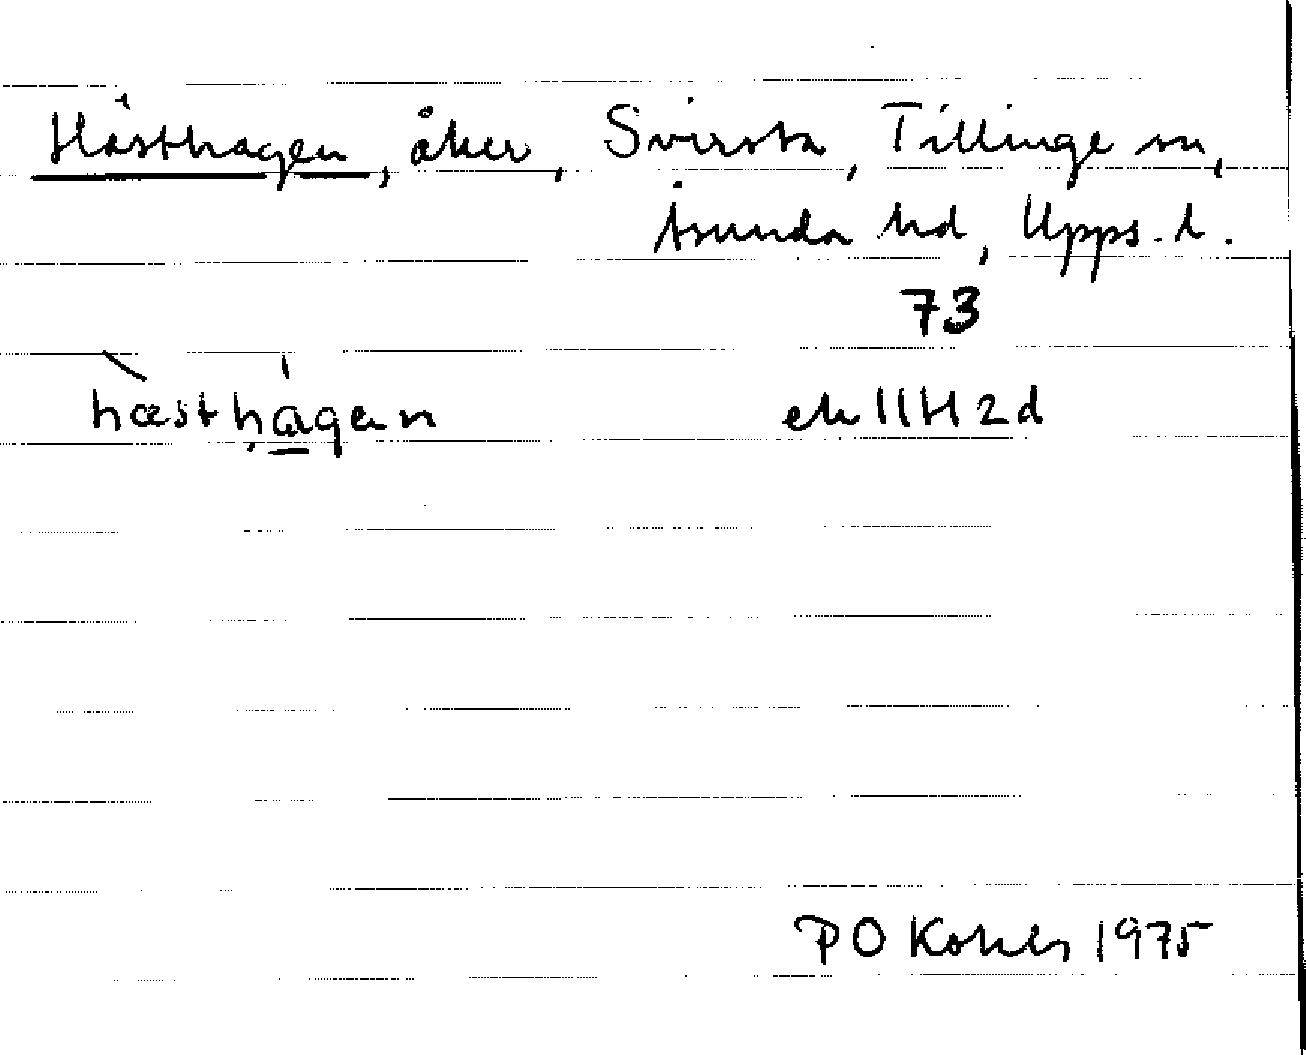 Hästhagen, åker, Svirsta, Tillinge sn,
Åsunda hd, Upps. l.
73
hæsthạ̀gen ek 11H2d
PO Kohls 1975